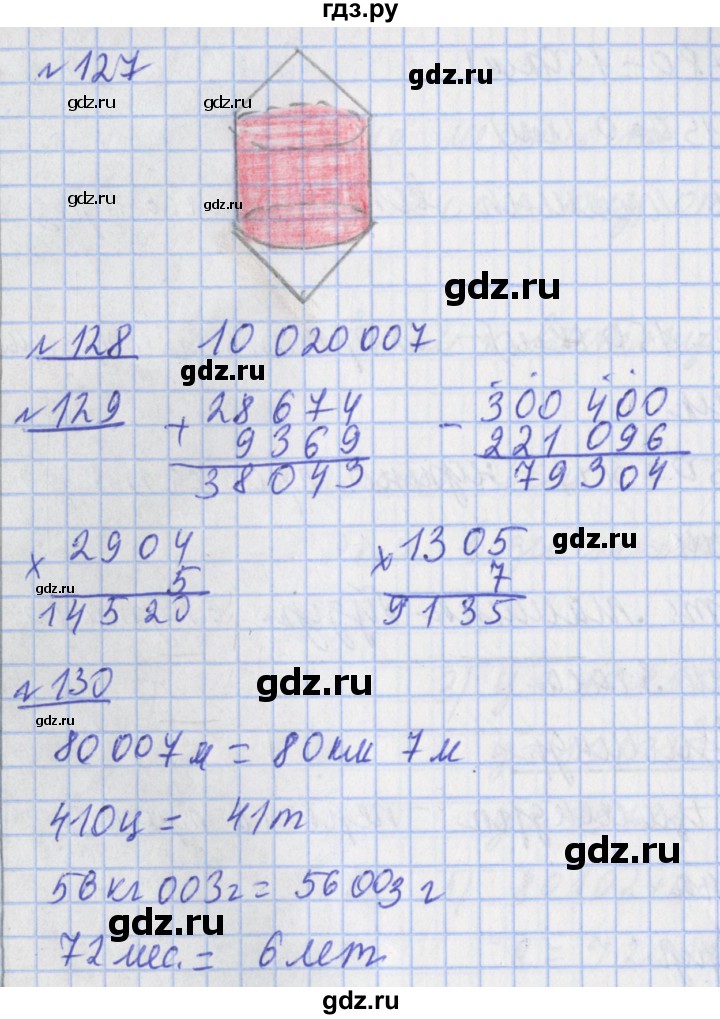 гдз.ру
№ 127
gdz.ru
gdz.ru
gdz.ru
gdz.ru
gdz.ru
gdz.ru
№ 128 10 020007
gdz.ru
№ 129 + 28674 - 300 400
9369 221 096
38043 79304
× 2904 × 1305
gdz.ru
gdz.ru 5 7
14520 9135
№ 130
gdz.ru
gdz.ru
80 007м = 80км 7м
410ц = 41т
gdz.ru
56кг 003г = 56003 г
gdz.ru
72мес. = 6 лет
gdz.ru